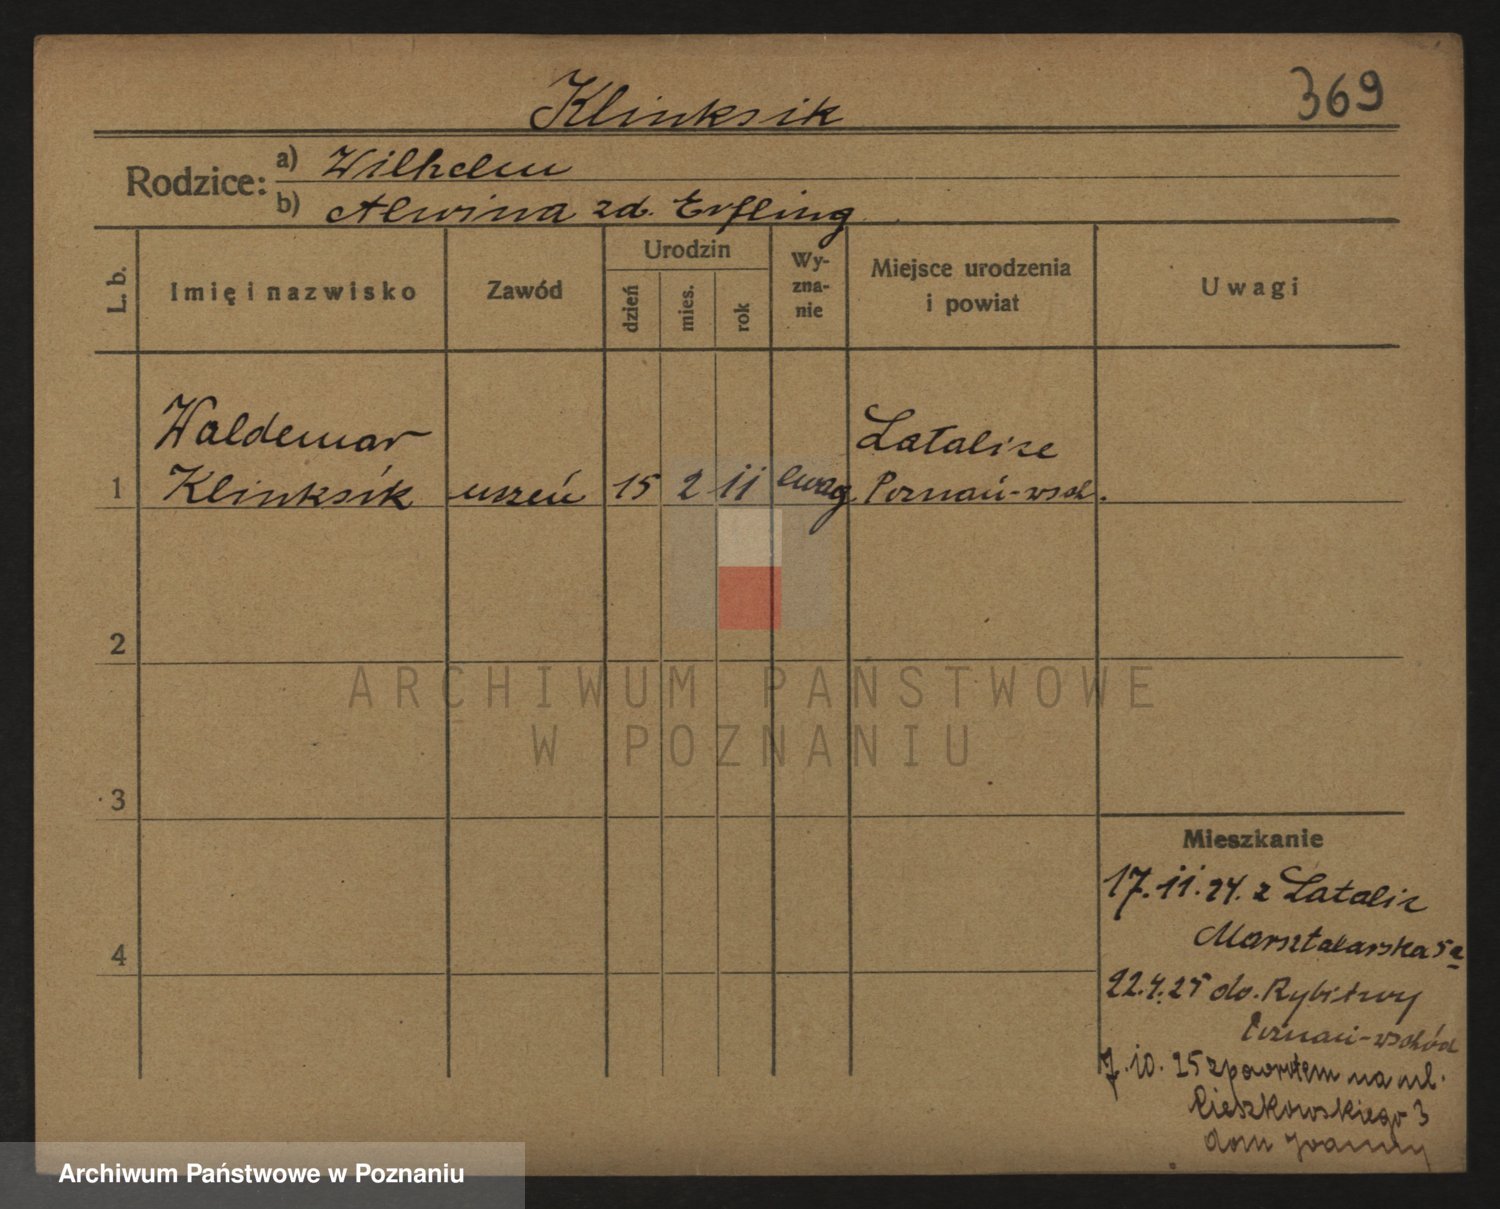 369
Klinksik
Rodzice:
a) Wilhelm
b) Alwina zd. Erfling
L. b.
Imię i nazwisko
Zawód
Urodzin
dzień
mies.
rok
Wy-
zna-
nie
Miejsce urodzenia
i powiat
Uwagi
Waldemar
Latalice
1 Klinksik uczeń 15 2 11 ewag Poznań-wsch.
2
ARCHIWUM PAŃSTWOWE
W POZNANIU
3
4
Mieszkanie
17.11.24. z Latalic
Marsztalarska 5a
22.4.25 do Rybitwy
Poznań-wschód
7.10.25 zpowrotem na ul.
Cieszkowskiego 3
dom Joanny
Archiwum Państwowe w Poznaniu